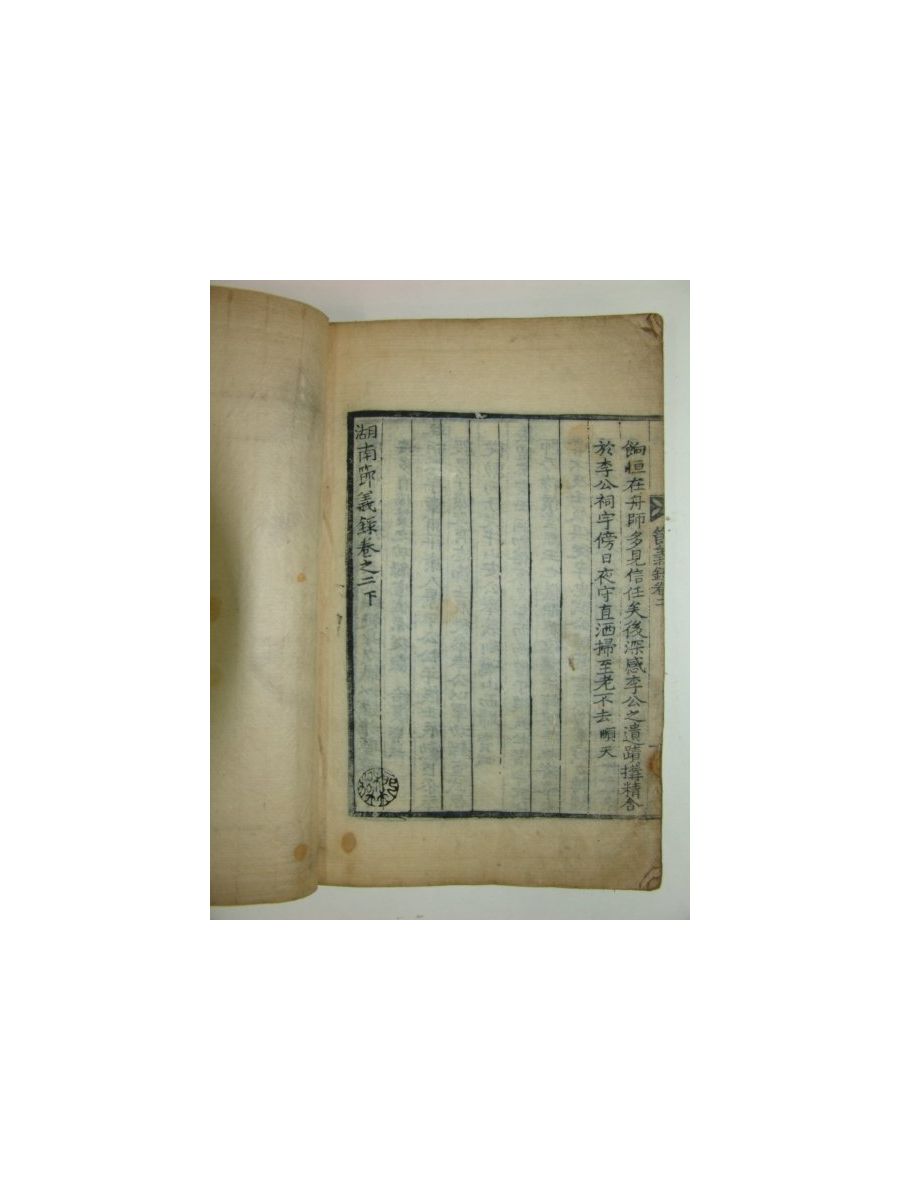 餉恒在舟師多見信任矣後深感李公之遺蹟搆精舍
於李公祠宇傍日夜守直洒掃至老不去 順天
湖南節義錄卷之二下
節義錄卷二